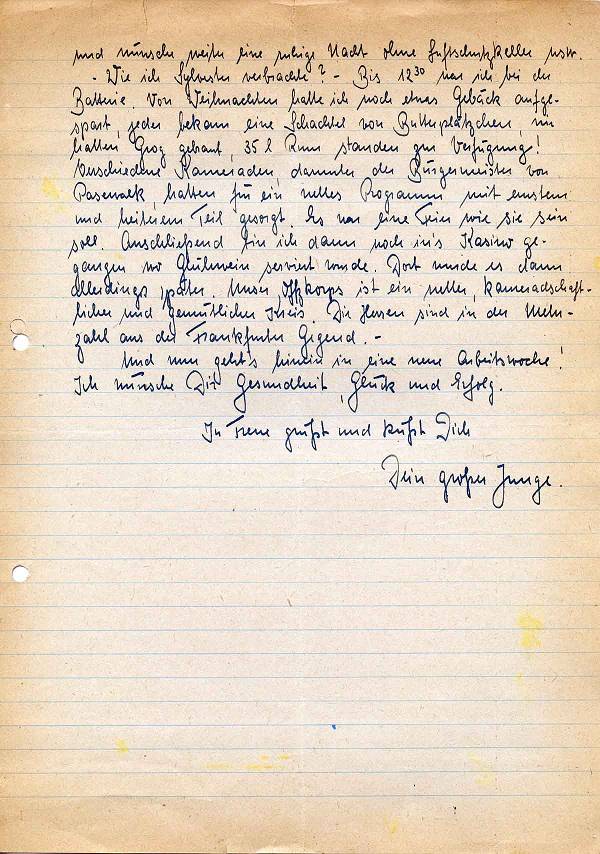 und wünsche weiter eine ruhige Nacht ohne Luftschutzkeller usw.
- Wie ich Sylvester verbrachte? - Bis 12³⁰ war ich bei der
Batterie. Von Weihnachten hatte ich noch etwas Gebäck aufge-
spart, jeder bekam eine Schachtel von Butterplätzchen, wir
hatten Grog gebraut, 35 l Rum standen zur Verfügung!
Verschiedene Kameraden, darunter der Bürgermeister von
Pasewalk, hatten für ein nettes Programm mit ernstem
und heiterem Teil gesorgt. Es war eine Feier wie sie sein
soll. Anschließend bin ich dann noch ins Kasino ge-
gangen wo Glühwein serviert wurde. Dort wurde es dann
allerdings später. Unser Offzkorps ist ein netter, kameradschaft-
licher und gemütlicher Kreis. Die Herren sind in der Mehr-
zahl aus der Frankfurter Gegend. -
Und nun geht's hinein in eine neue Arbeitswoche!
Ich wünsche Dir Gesundheit, Glück und Erfolg.
In Treue grüßt und küßt Dich
Dein großer Junge.